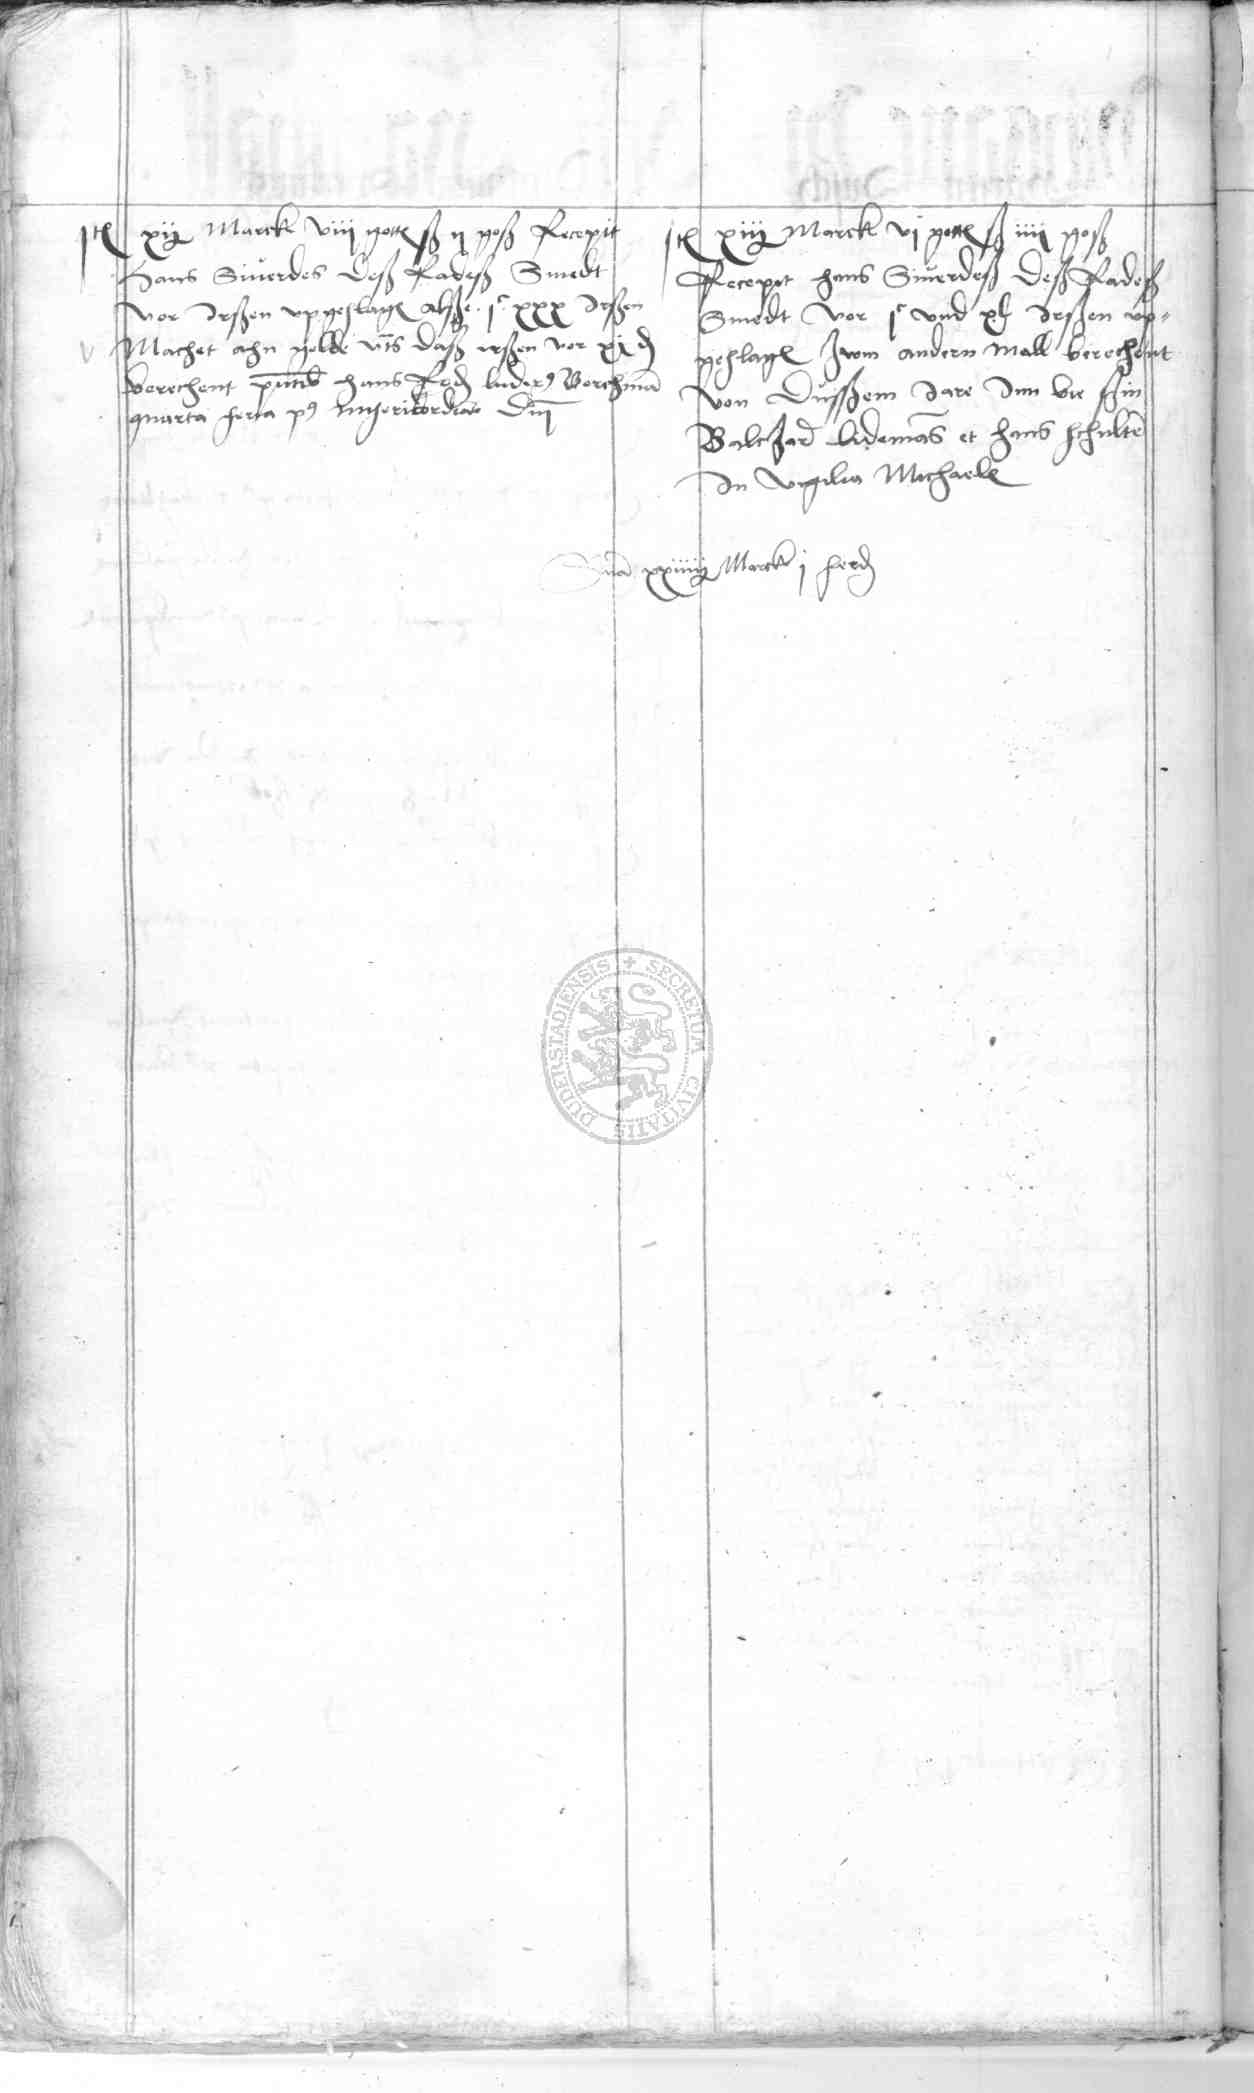 Itē xij Marck viij gottē ß ij goß Recepit
Hans Siuerdes deß Radeß Smedt
vor Irßen vpgeslagē alße jᶜ xxx Irßen
Machet ahn gelde vts daß irßen vor xj d
berechent hans luders Borchman
quarta feria pꝰ Misericordias Dni
Itē xiij Marck vj gottē ß iiij goß
Recepit hans Siuerdeß deß Radeß
Smedt vor jᶜ vnd xl Irßen vp-
geslagē Zcom andern Mall berechent
von dussßem Jare Inn bie ßin
Baltzar Lidemās et hans schulte
In vigilia Michaelē
Suā xxiiij Marck j ferd
SECRETUM CIVITATIS DUDERSTADIENSIS